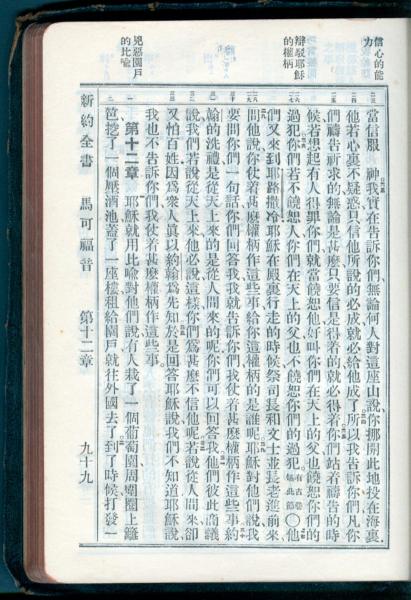 信心的能力
辯駁耶穌的權柄
兇惡園戶的比喻
當信服　神我實在告訴你們無論何人對這座山說你挪開此地投在海裏
他若心裏不疑惑只信他所說的必成就必給他成了所以我告訴你們凡你
們禱告祈求的無論是甚麼只要信是得着的就必得着你們站着禱告的時
候若想起有人得罪你們就當饒恕他好叫你們在天上的父也饒恕你們的
過犯你們若不饒恕人你們在天上的父也不饒恕你們的過犯有古卷無此節〇他
們又來到耶路撒冷耶穌在殿裏行走的時候祭司長和文士並長老進前來
問他說你仗着甚麼權柄作這些事給你這權柄的是誰呢耶穌對他們說我
要問你們一句話你們回答我我就告訴你們我仗着甚麼權柄作這些事約
翰的洗禮是從天上來的是從人間來的呢你們可以回答我他們彼此商議
說我們若說從天上來他必說這樣你們爲甚麼不信他呢若說從人間來卻
又怕百姓因爲衆人眞以約翰爲先知於是回答耶穌說我們不知道耶穌說
我也不告訴你們我仗着甚麼權柄作這些事
第十二章　耶穌就用比喻對他們說有人栽了一個葡萄園周圍圈上籬
笆挖了一個壓酒池蓋了一座樓租給園戶就往外國去了到了時候打發一
新約全書　馬可福音　第十二章　九十九